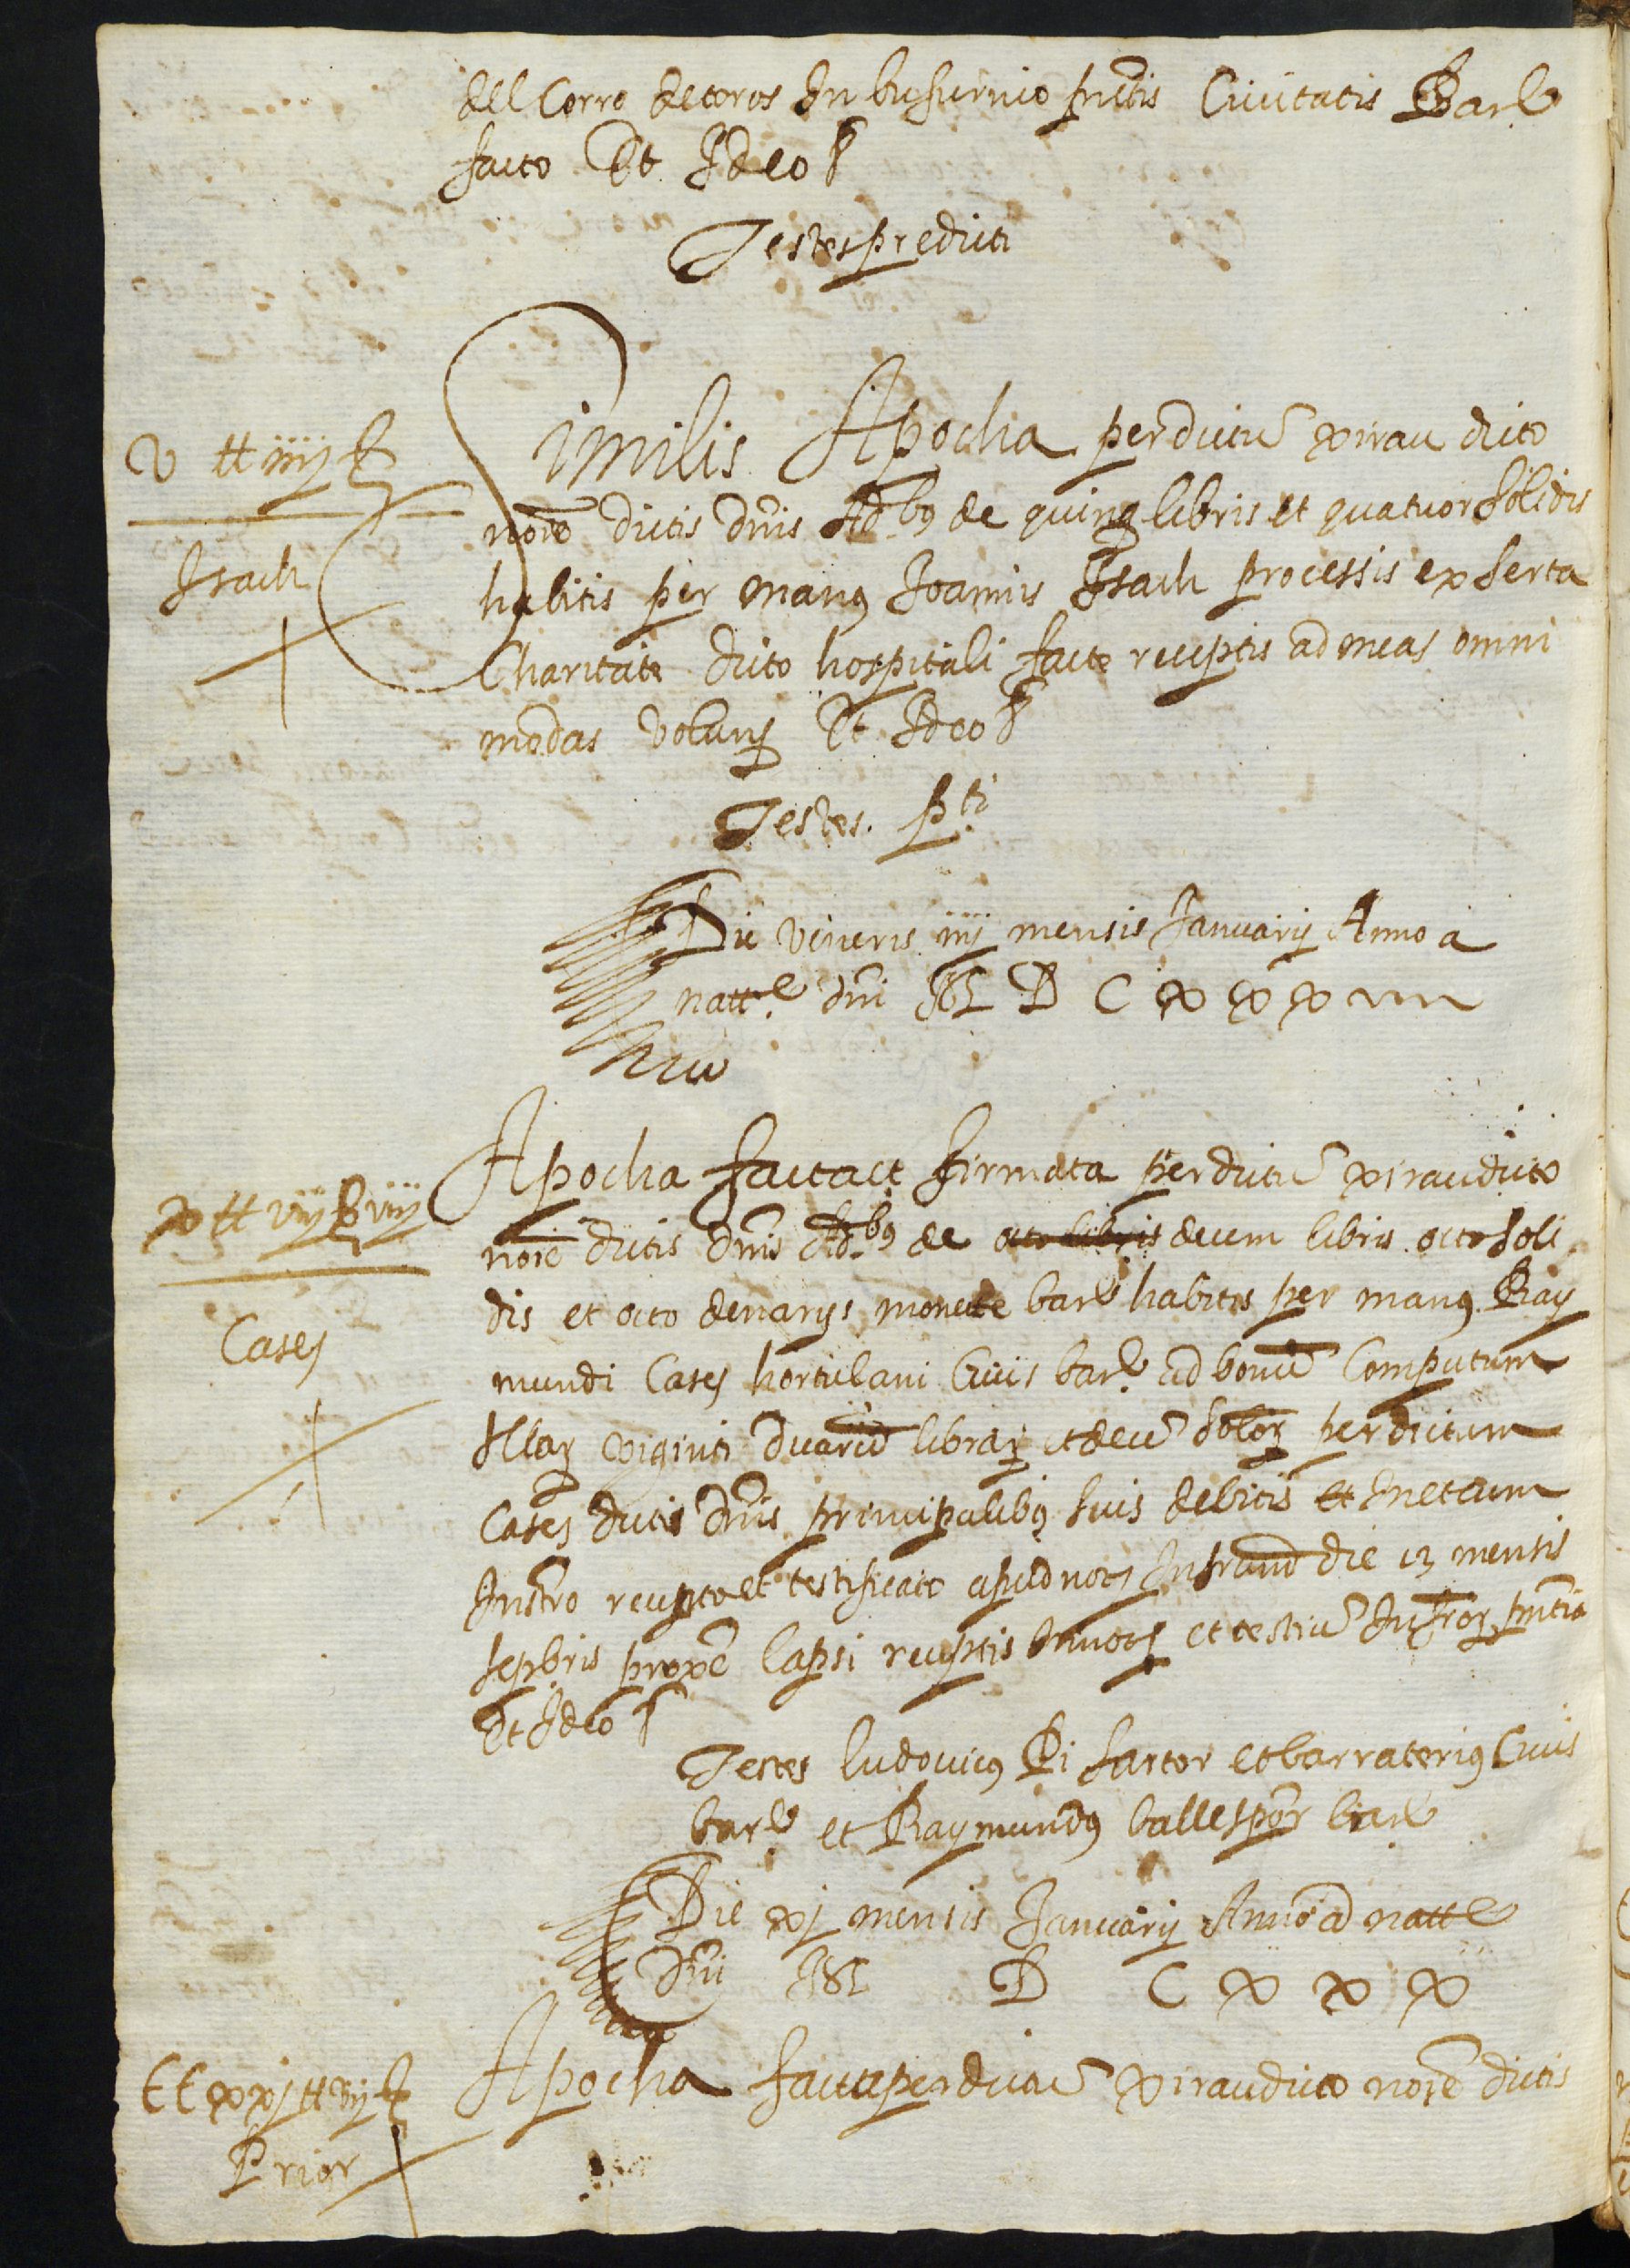 dell Corro de toros In busurnio pntis Civitatis Barñ
facto Et Ideo
Testes predicti
v ₶ iiij ß
Isach
Similis Apocha per dictũ xirau dicto
noīe dictis dnis Adbꝯ de quinq libris et quatuor Solidis
habitis per manꝯ Joannis Isach processis ex Certa
Charitate dicto hospitali facte receptis ad meas omni
modas volunt Et Ideo
Testes. pti
Die veneris iiij mensis Januarij Anno a
natte dni M D C x x x
x ₶ viij ß viij
Cases
Apocha facta et firmata per dictũ xirau dicto
noīe dictis dnis Adbꝯ de octo libris decem libris octo Soli
dis et octo denarijs monete barñ habitis per manꝯ Ray
mundi Cases hortulani Civis barñ ad bonũ Computum
Illaꝝ viginti duarũ libraꝝ et decẽ Soloꝝ per dictum
Cases dictis dnis principalibꝯ suis debitis et
Instro recepto et testificato apud notm Infrum die 13 mensis
sepbris proxe lapsi receptis In notij et testiũ Infroꝝ pntia
Et Ideo
Testes ludovicꝯ Pi sartor et barrateriꝯ Civis
barñ et Raymundꝯ ballespor barñ
Die xj mensis Januarij Anno a natte
Dni M D C x x x
CC xxj ₶ vij ß
Prior
Apocha facta per dictũ xirau dicto noīe dictis